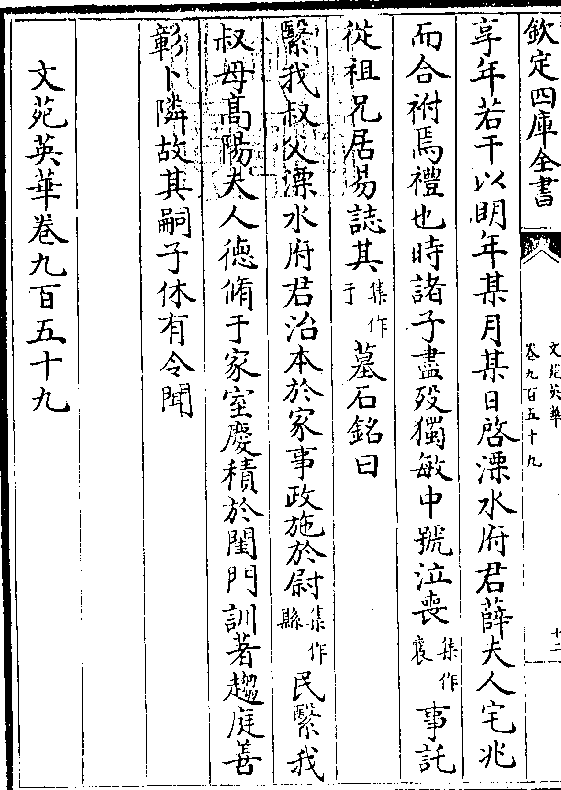 欽定四庫全書
文苑英華
卷九百五十九
十二
享年若干以明年某月某日啓溧水府君薛夫人宅兆
而合祔焉禮也時諸子盡歿獨敏中號泣喪集作襄事託
從祖兄居易誌其集作于墓石銘曰
繄我叔父溧水府君治本於家事政施於尉集作縣民繄我
叔母髙陽夫人德脩于家室慶積於閨門訓著趨庭善
彰卜隣故其嗣子休有令聞
文苑英華卷九百五十九